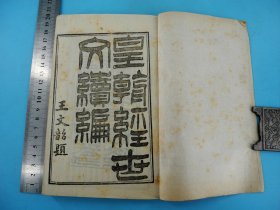 皇朝經世
文續編
王文韶題